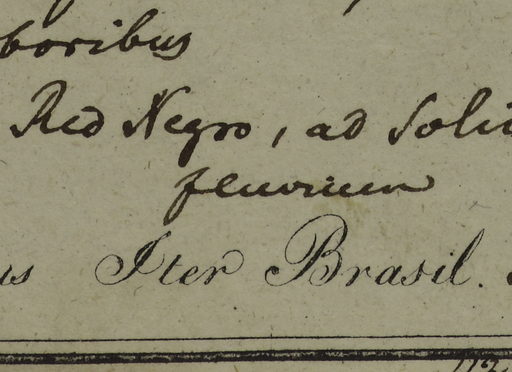 boribus
Rio Negro, ad Soli
fluvium
us Iter Brasil.